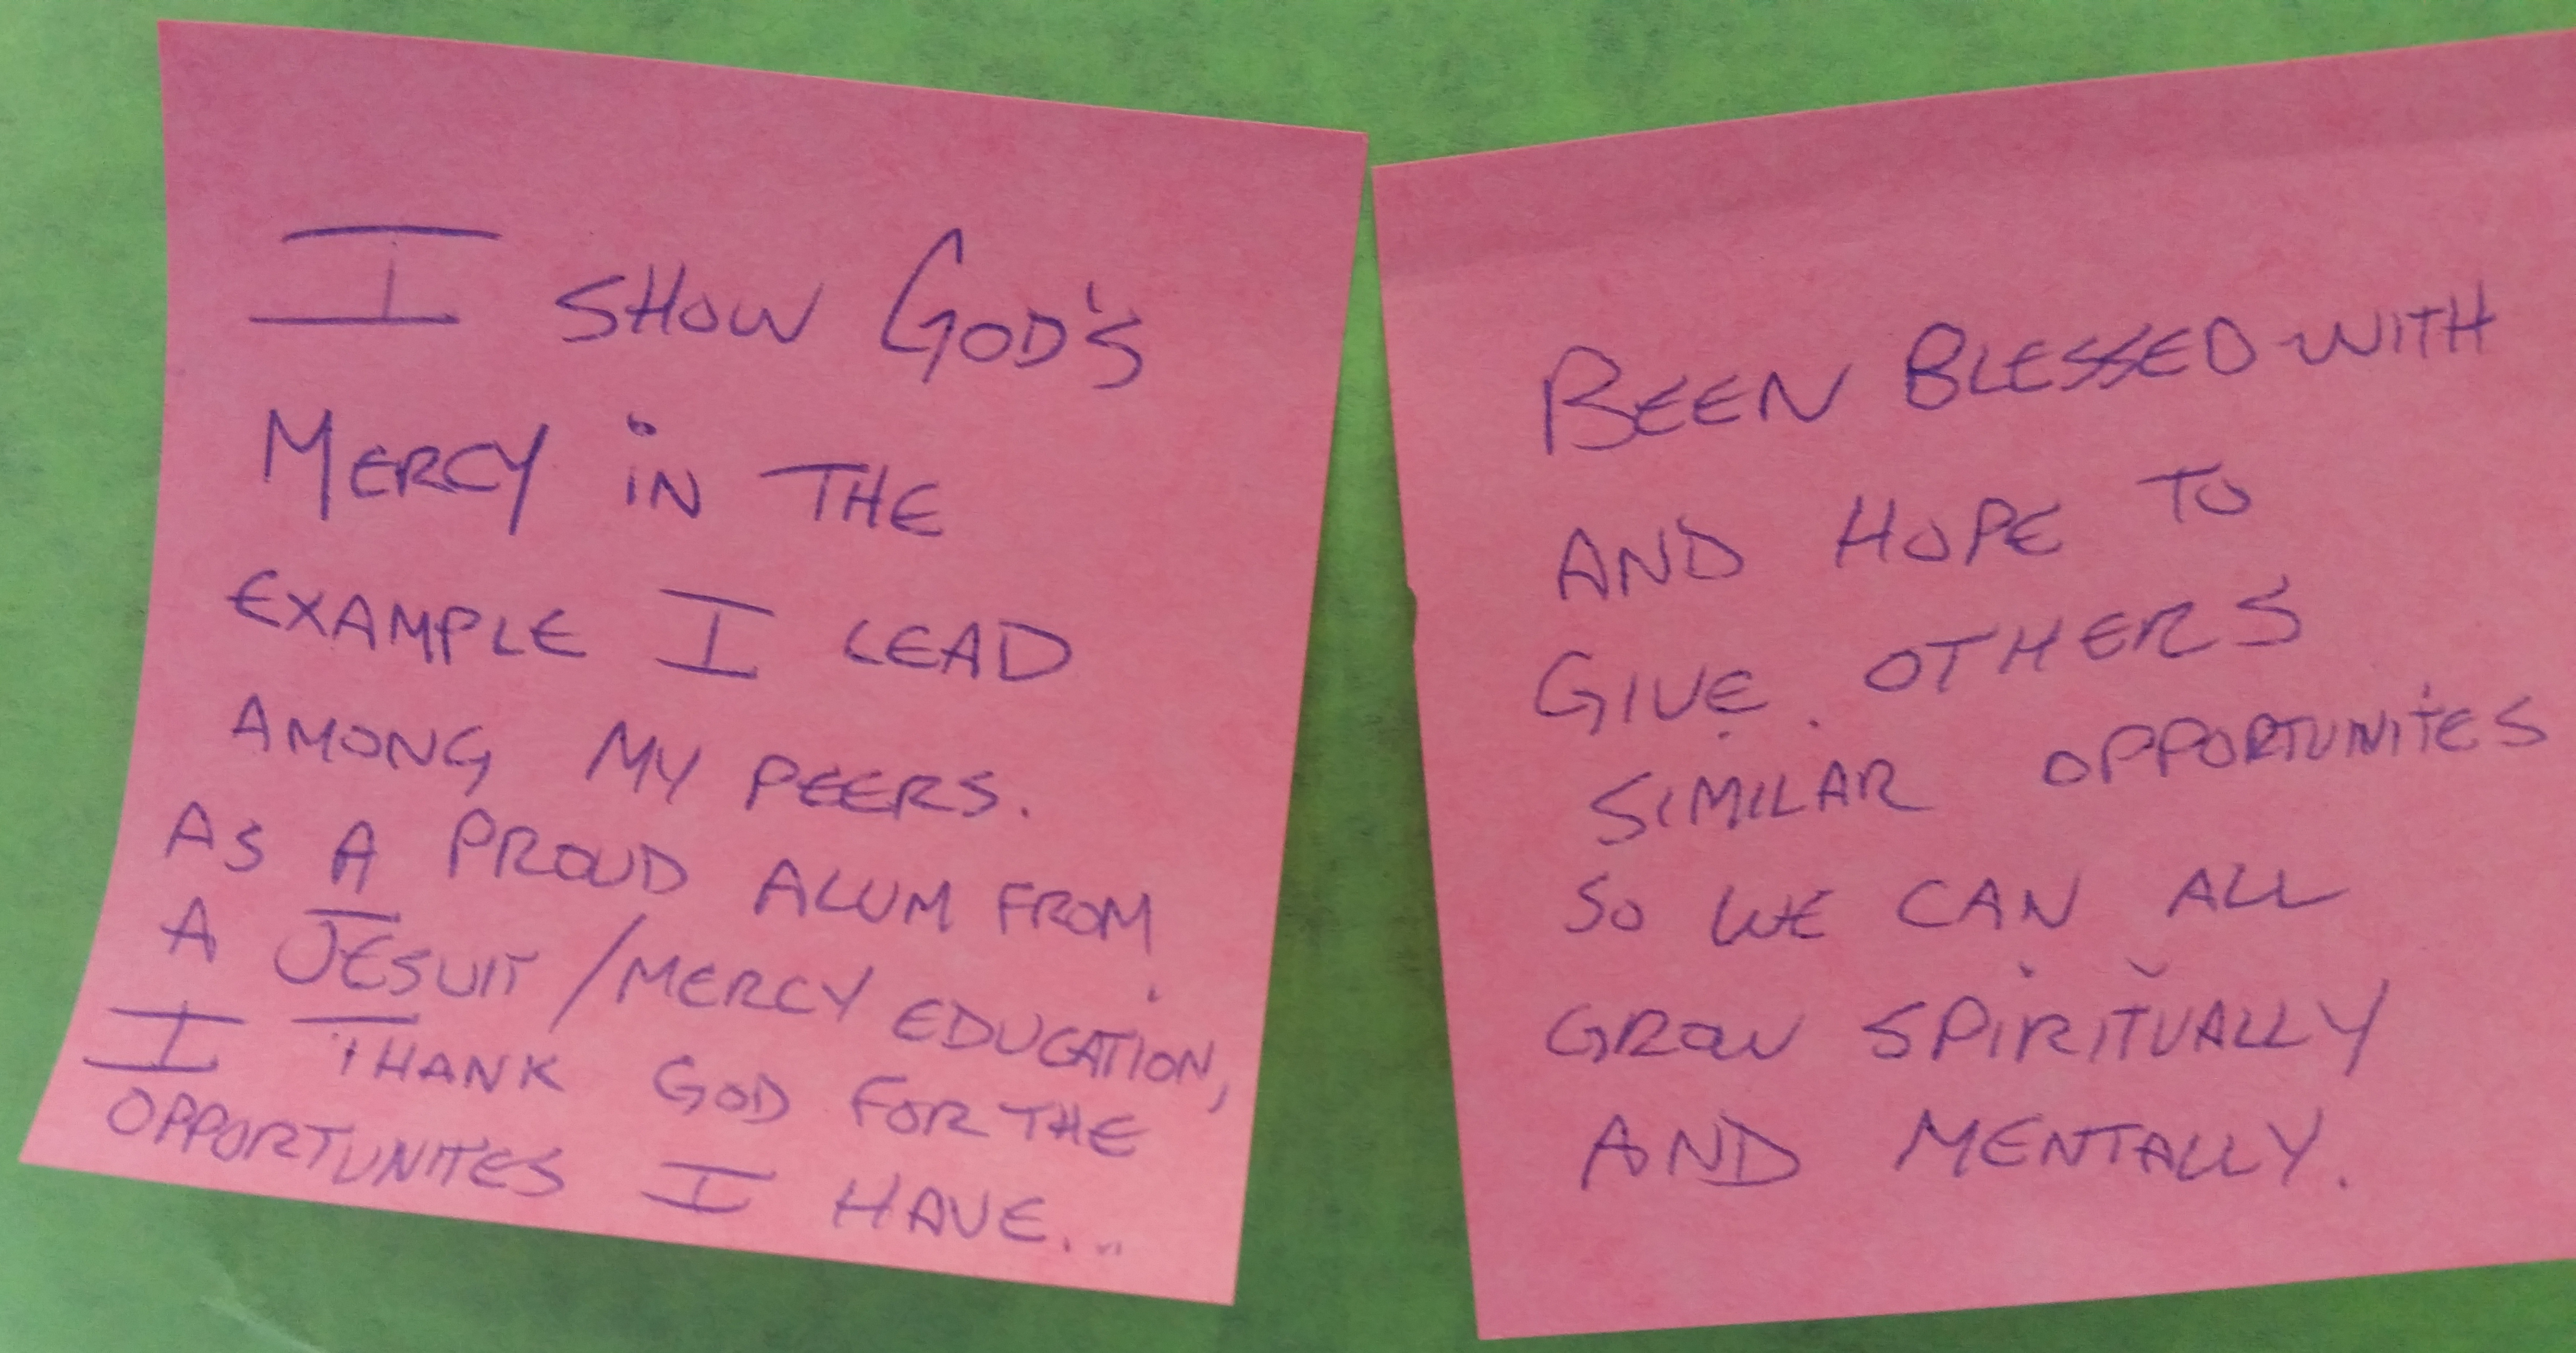 I SHOW GOD'S
MERCY iN THE
EXAMPLE I LEAD
AMONG MY PEERS.
AS A PROUD ALUM FROM
A JESUIT/MERCY EDUCATION,
I THANK GOD FOR THE
OPPORTUNITES I HAVE...
BEEN BLESSED WITH
AND HOPE TO
GIVE OTHERS
SIMILAR OPPORTUNITES
SO WE CAN ALL
GROW SPIRITUALLY
AND MENTALLY.